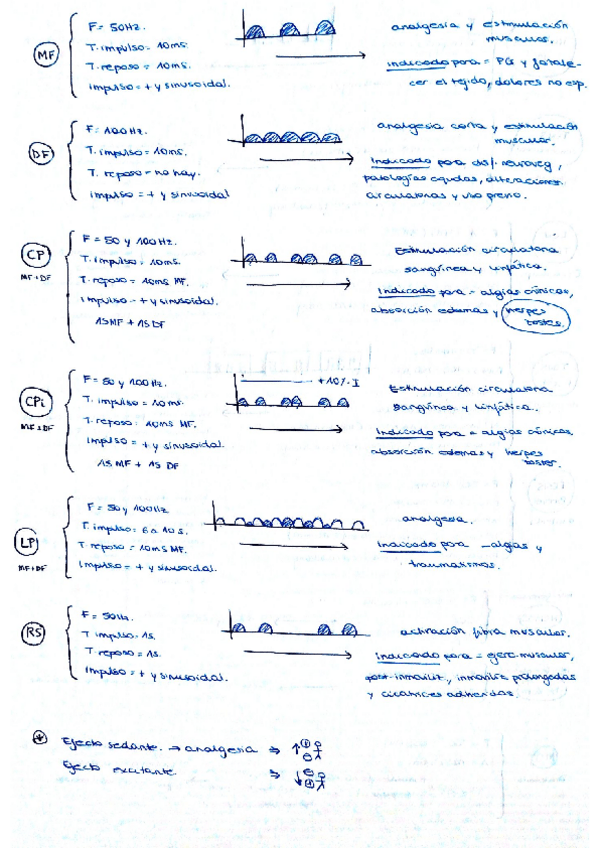 MF
F = 50Hz.
T. impulso = 10ms.
T. reposo = 10ms.
impulso = + y sinusoidal.
analgesia y estimulación
muscular.
indicado para = PG y fortale-
cer el tejido, dolores no esp.
DF
F = 100Hz.
T. impulso = 10ms.
T. reposo = no hay.
impulso = + y sinusoidal
analgesia corta y estimulación
muscular.
Indicado para neuroveg,
patologías agudas, alteraciones
circulatorias y uso previo.
CP
MF + DF
F = 50 y 100Hz.
T. impulso = 10ms.
T. reposo = 10ms MF.
Impulso = + y sinusoidal.
1S MF + 1S DF
Estimulación circulatoria
sanguínea y linfática.
Indicado para = algias crónicas,
absorción edemas y herpes
zoster.
CPi
MF ± DF
F = 50 y 100Hz.
T. impulso = 10ms.
T. reposo = 10ms MF.
impulso = + y sinusoidal.
1S MF + 1S DF
+10% I
Estimulación circulatoria
sanguínea y linfática.
Indicado para = algias crónicas
absorción edemas y herpes
zoster.
LP
MF + DF
F = 50 y 100Hz
T. impulso = 6 a 10 s.
T. reposo = 10ms MF.
Impulso = + y sinusoidal.
analgesia.
Indicado para -algias y
traumatismos.
RS
F = 50Hz.
T impulso = 1s.
T. reposo = 1s.
Impulso = + y sinusoidal.
activación fibra muscular.
Indicado para = ejerc. muscular,
post-inmoviliz., inmoviliz prolongadas
y cicatrices adheridas.
Efecto sedante → analgesia ⇒ ↑ ⊕ ⊖
Efecto excitante ⇒ ↓ ⊖ ⊕